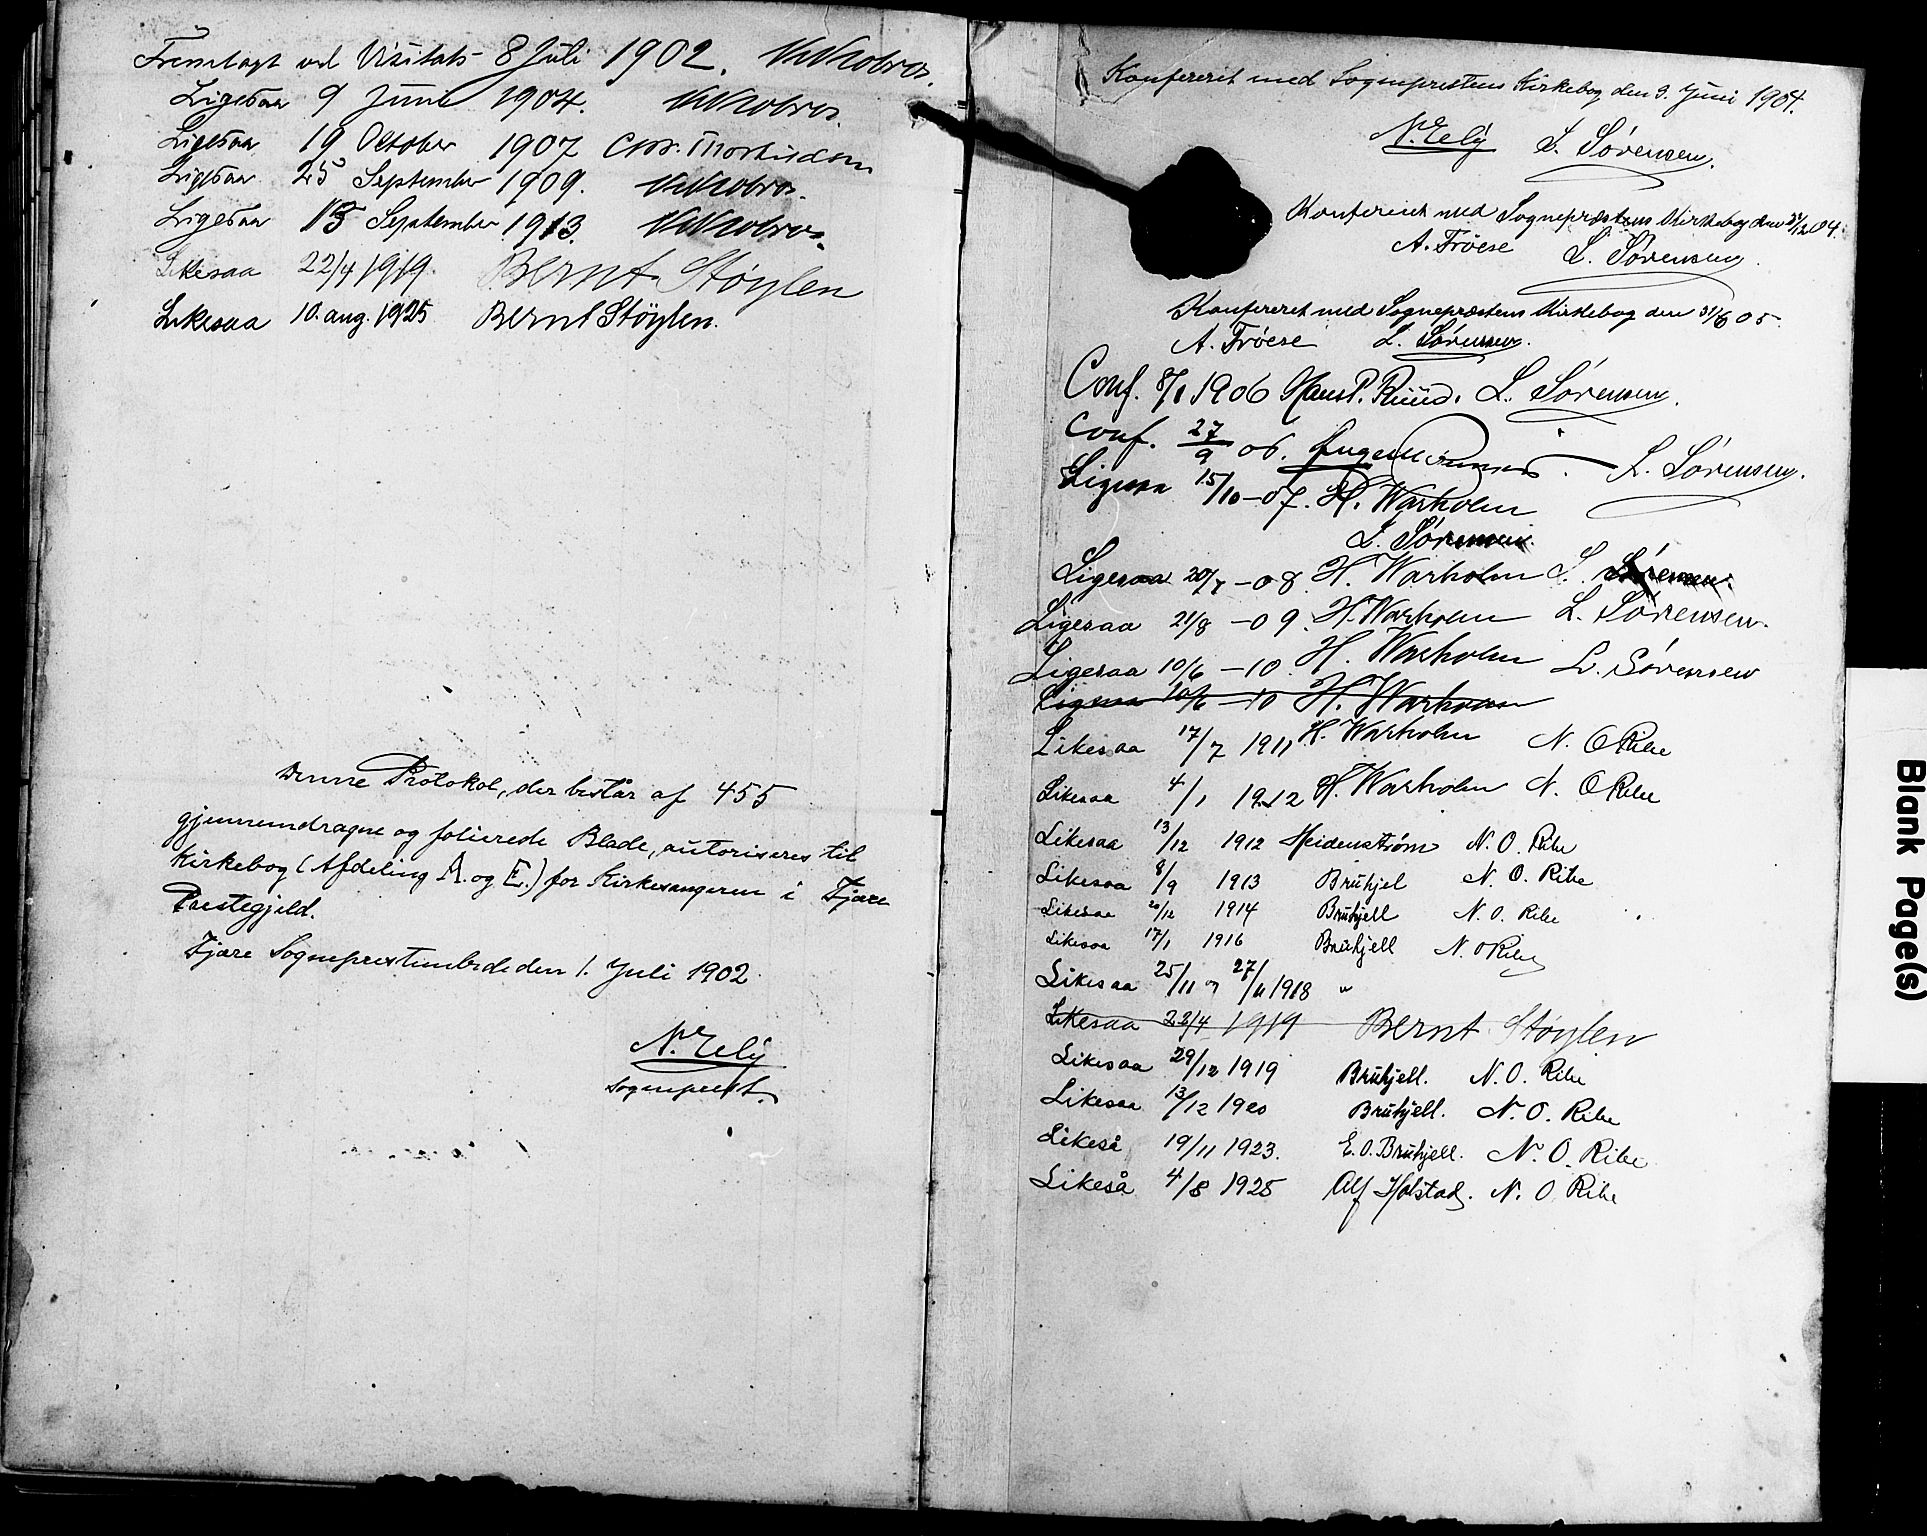 Fremlagt ved Visitats 8 Juli 1902.
Ligesaa 9 Juni 1904.
Ligesaa 19 October 1907
Ligesaa 25 September 1909.
Ligesaa 13 September 1913.
Likesaa 22/4 1919. Bernt Støylen
Likesaa 10. aug. 1925 Bernt Støylen.
Denne Protokol, der består af 455
gjennemdragne og folierede Blade, autoriseres til
Kirkebog (Afdeling A. og E.) for Kirkesangeren i Fjære
Præstegjeld.
Fjære Sogneprestembede den 1. Juli 1902.
Sogneprest.
Konfereret med Sogneprestens Kirkebog den 9. Juni 1904.
L. Sørensen.
Konfereret med Sognepræstens Kirkebog den 04.
A. Frøese L. Sørensen.
Konfereret med Sognepræstens Kirkebog den 05.
A. Frøese L. Sørensen.
Conf. 8/1 1906 Hans P. Ruud. L. Sørensen.
Conf. 27/9 06. L. Sørensen.
Ligesaa 15/10 - 07. H. Warholm
L. Sørensen.
Ligesaa 20/7 - 08 H. Warholm L. Sørensen.
Ligesaa 21/8 - 09. H. Warholm L. Sørensen.
Ligesaa 10/6 - 10 H. Warholm L. Sørensen
Ligesaa 10/6 - 10 H. Warholm
Likesaa 17/7 1911 H. Warholm N. O Ribe
Likesaa 4/1 1912 H. Warholm N. O Ribe
Likesaa 13/12 1912 Heidenstrøm N. O. Ribe
Likesaa 8/9 1913 Bruhjel N. O. Ribe
Likesaa 20/12 1914 Bruhjell N. O. Ribe
Likesaa 17/1 1916 Bruhjell N. O Ribe
Likesaa 25/11 og 27/11 1918 "
Likesaa 22/4 1919 Bernt Støylen
Likesaa 29/12 1919 Bruhjell. N. O. Ribe
Likesaa 13/12 1920 Bruhjell. N. O. Ribe
Likeså 19/11 1923. E. O. Bruhjell. N. O. Ribe
Likeså 4/8 1925 Alf Holstad. N. O. Ribe
Blank Page(s)